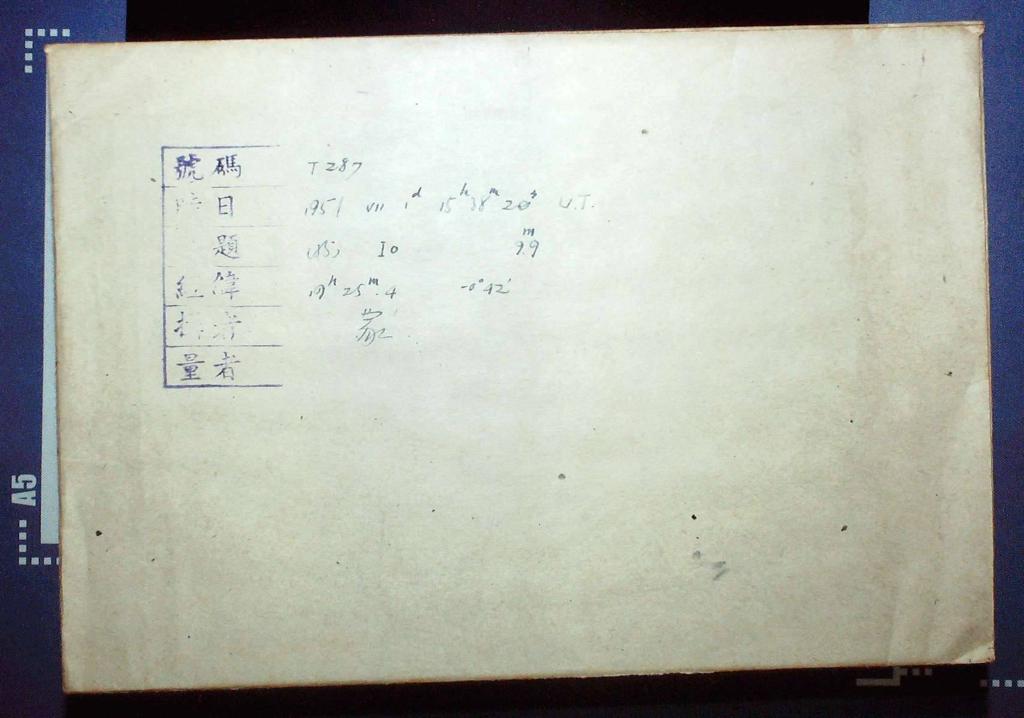 號碼 T 287
時日 1951 VII 1d 15h 38m 20s U.T.
題 (85) Io 9.9m
紅偉 19h 25m.4 -0°42'
者
量者
A5